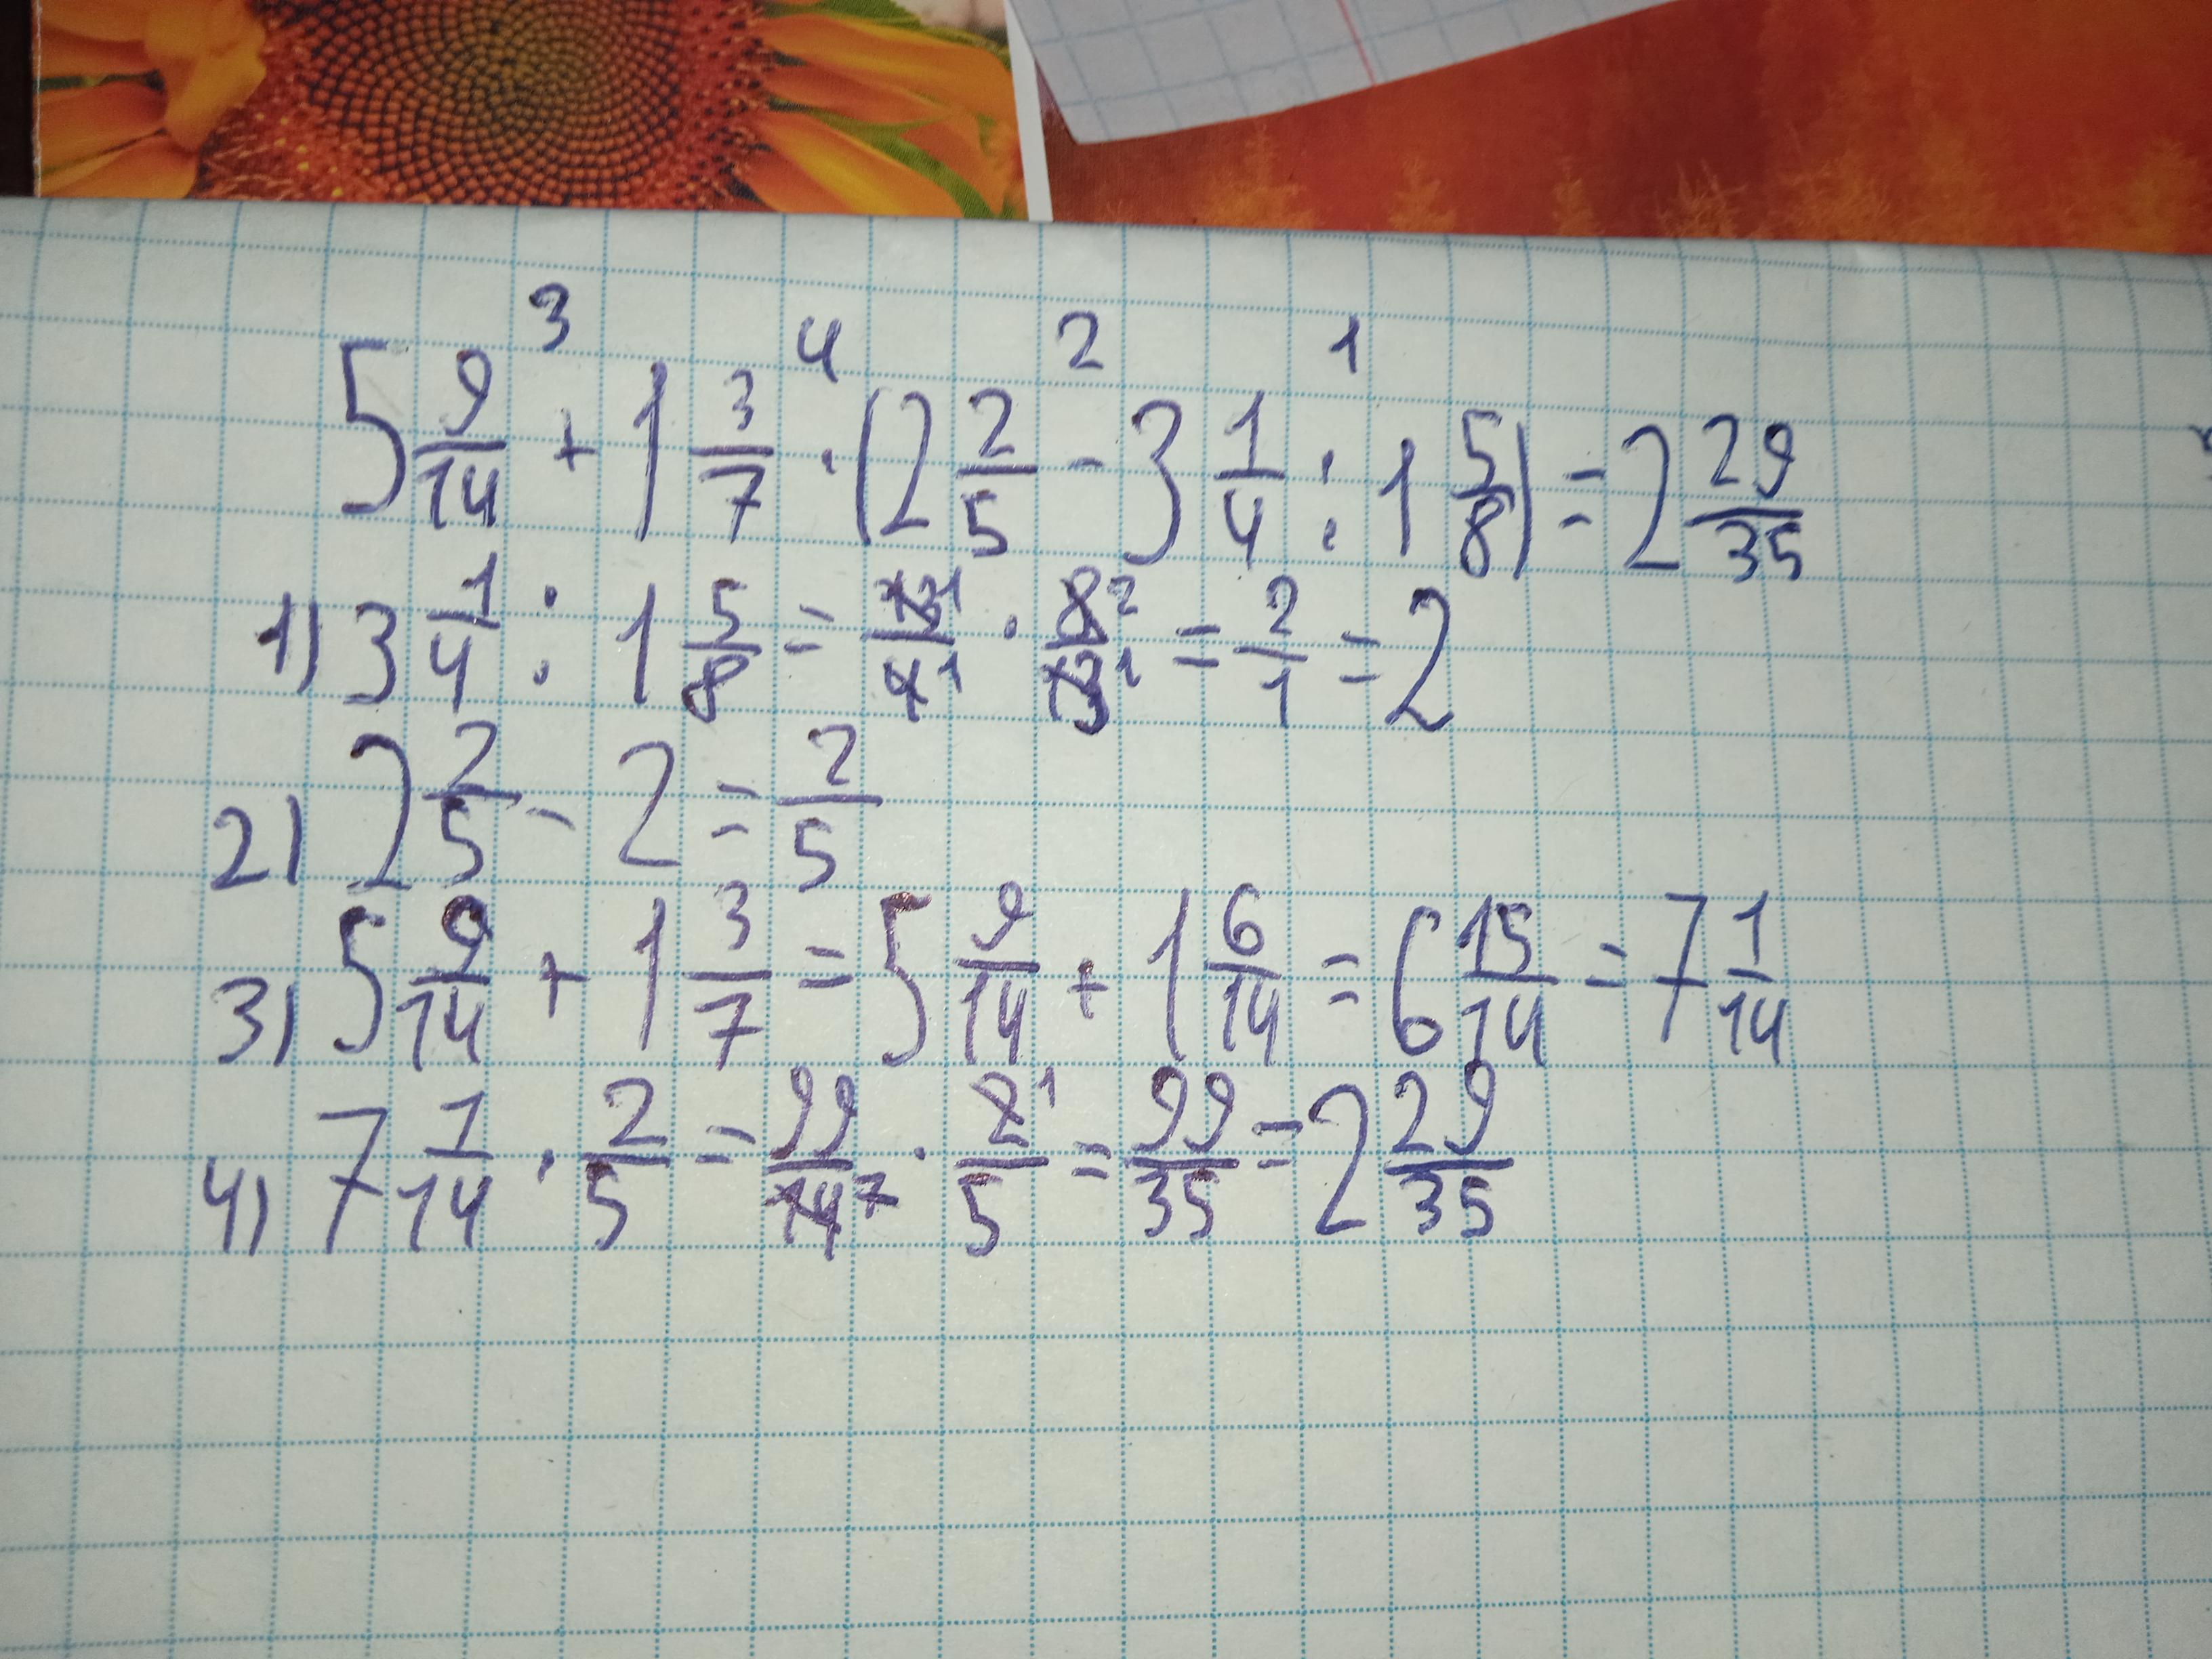 3 4 2 1
5 9/14 + 1 3/7 · (2 2/5 - 3 1/4 : 1 5/8) = 2 29/35
1) 3 1/4 : 1 5/8 = 13 1/4 1 · 8 2/13 1 = 2/1 = 2
2) 2 2/5 - 2 = 2/5
3) 5 9/14 + 1 3/7 = 5 9/14 + 1 6/14 = 6 15/14 = 7 1/14
4) 7 1/14 · 2/5 = 99/14 7 · 2 1/5 = 99/35 = 2 29/35